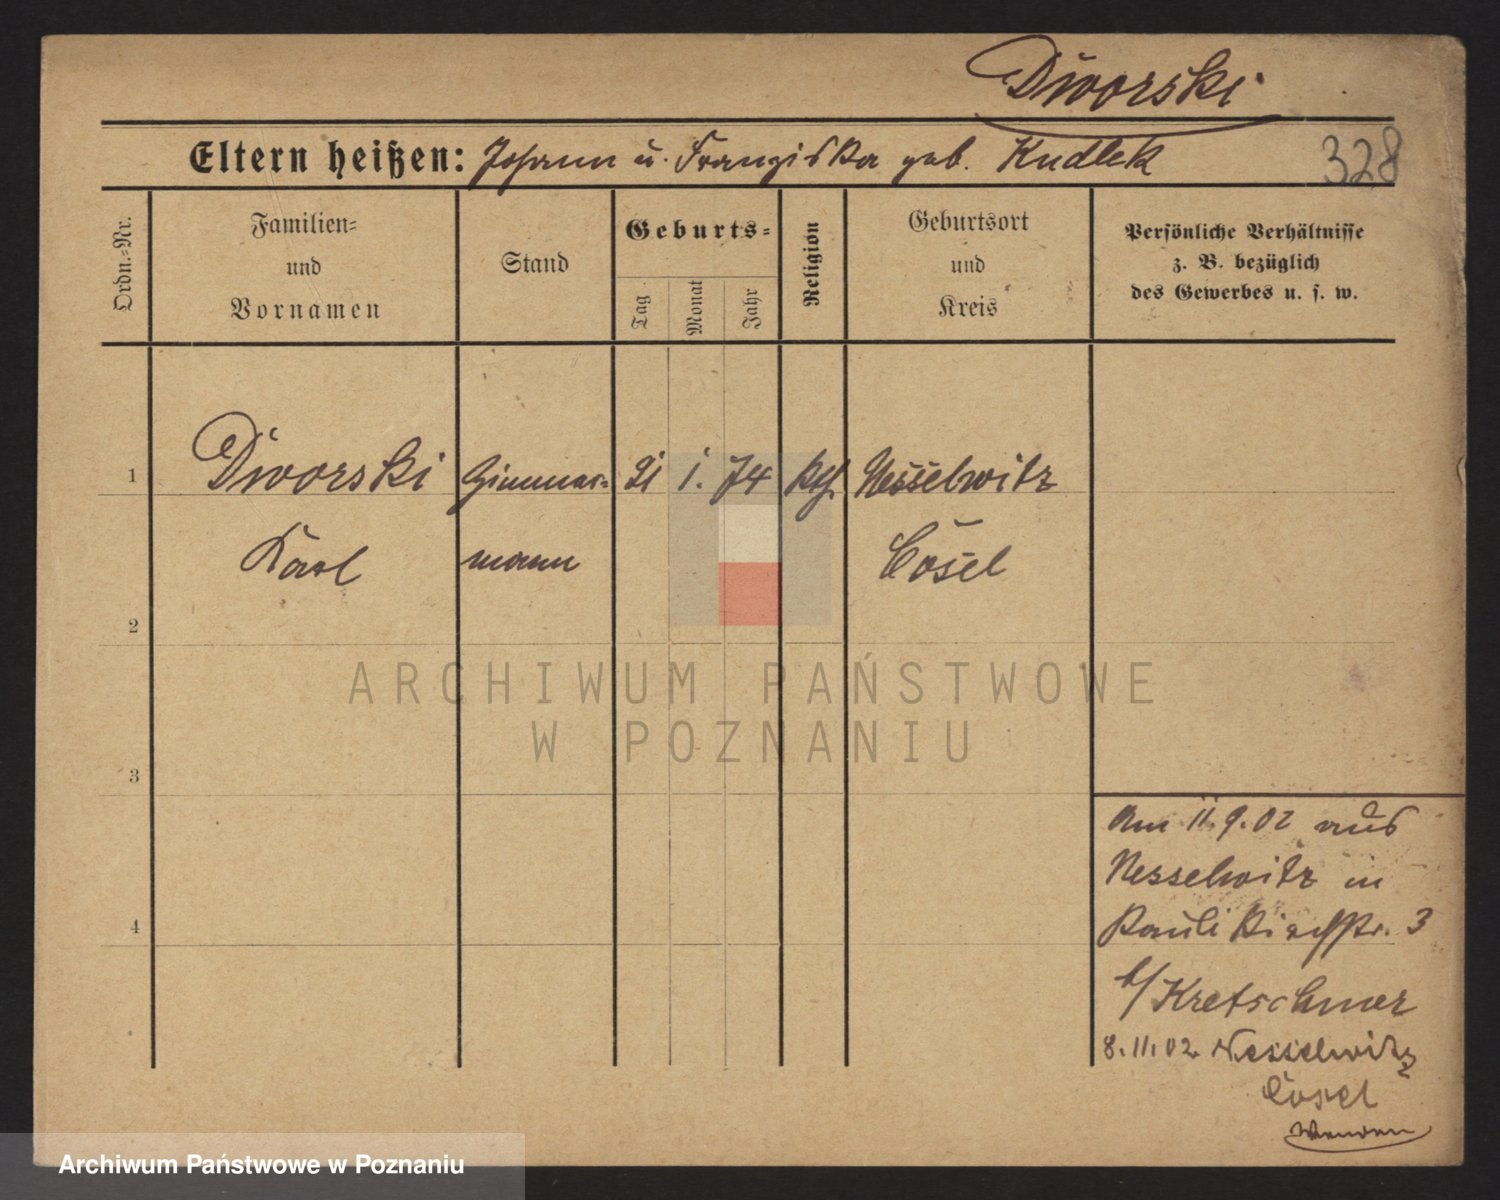 Dworski
Eltern heißen: Johann u. Franziska geb. Kudlek
328
Ordn.-Nr.
Familien-
und
Vornamen
Stand
Geburts-
Tag
Monat
Jahr
Religion
Geburtsort
und
Kreis
Persönliche Verhältnisse
z. B. bezüglich
des Gewerbes u. s. w.
1
Dworski Zimmer- 21 1. 74 kth Nesselwitz
Karl mann Cosel
2
3
4
Am 11.9.02 aus
Nesselwitz in
Pauli Kirchstr. 3
b/ Kretschmer
8.11.02 Nesselwitz
Cosel
ARCHIWUM PAŃSTWOWE
W POZNANIU
Archiwum Państwowe w Poznaniu